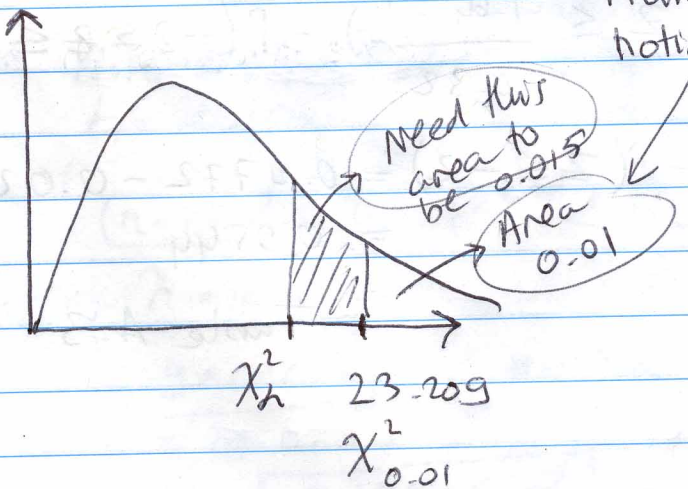 noti
Need this
area to
be 0.015
Area
0.01
χ² 23.209
χ²
0.01